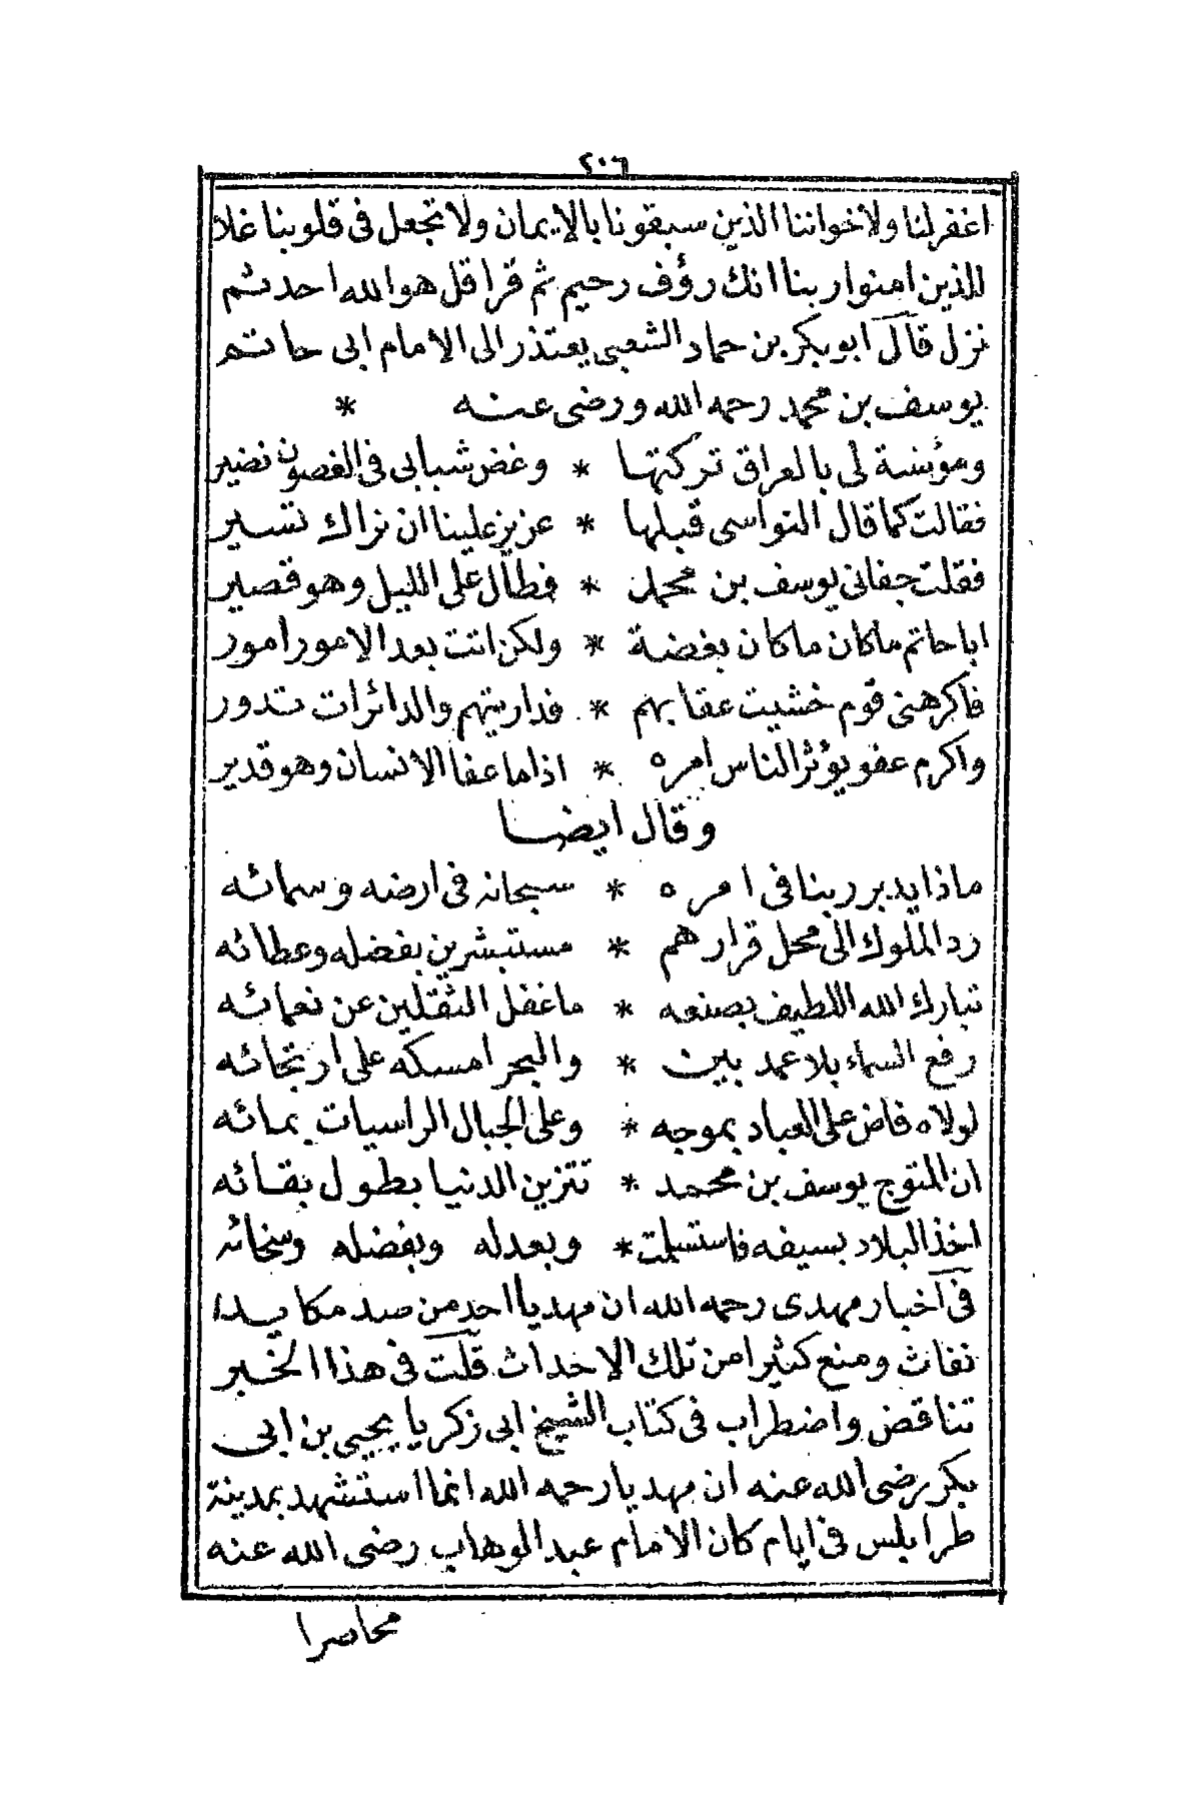 ٢٠٦
اغفر لنا ولاخواننا الذين سبقونا بالايمان ولا تجعل فى قلوبنا غلا
للذين امنوا ربنا انك رؤف رحيم ثم قرا قل هو الله احد ثم
نزل قال ابو بكر بن حماد الشعبى يعتذر الى الامام ابى حاتم
يوسف بن محمد رحمه الله ورضى عنه *
ومؤنسة لى بالعراق تركتها * وغض شبابى فى الغصون نضير
فقالت كما قال النواسى قبلها * عزيز علينا ان نراك تسير
فقلت جفانى يوسف بن محمد * فطال على الليل وهو قصير
ابا حاتم ما كان ما كان بغضة * ولكن اتت بعد الامور امور
فاكرهنى قوم خشيت عقابهم * فداريتهم والدائرات تدور
واكرم عفو يؤثر الناس امره * اذا ما عفا الانسان وهو قدير
وقال ايضا
ماذا يدبر ربنا فى امره * سبحانه فى ارضه وسمائه
رد الملوك الى محل قرارهم * مستبشرين بفضله وعطائه
تبارك الله اللطيف بصنعه * ما غفل الثقلين عن نعمائه
رفع السماء بلا عمد بين * والبحر امسكه على ارتجائه
لولاه فاض على العباد بموجه * وعلى الجبال الراسيات بمائه
ان المتوج يوسف بن محمد * تتزين الدنيا بطول بقائه
اخذ البلاد بسيفه فاستسلمت * وبعدله وبفضله وسخائه
فى آخبار مهدى رحمه الله ان مهديا احد من صد مكايد
نفاث ومنع كثيرا من تلك الاحداث قلت فى هذا الخبر
تناقض واضطراب فى كتاب الشيخ ابى زكريا يحيى بن ابى
بكر رضى الله عنه ان مهديا رحمه الله انما استشهد بمدينة
طرابلس فى ايام كان الامام عبد الوهاب رضى الله عنه
محاصرا